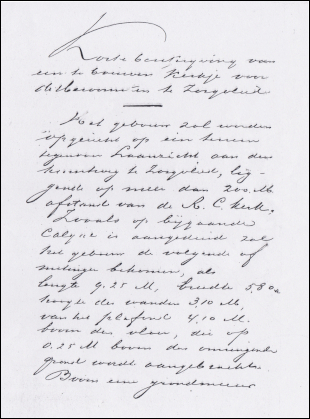 Korte beschrijving van
een te bouwen kerkje voor
de Hervormden te Zorgvlied.
Het gebouw zal worden
opgericht op een terrein
tegenover aan den
te Zorgvlied, lig-
gende op meer dan 200 M.
afstand van de R. C. Kerk.
Zooals op bijgaande
Calque is aangeduid zal
het gebouw de volgende af-
metingen bekomen, als
lengte 9.25 M, breedte 5.80 M
hoogte der wanden 3.10 M,
van het plafond 4.10 M.
boven den vloer, die op
0.25 M boven den omringenden
grond wordt aangebracht.
Boven een grondmuur